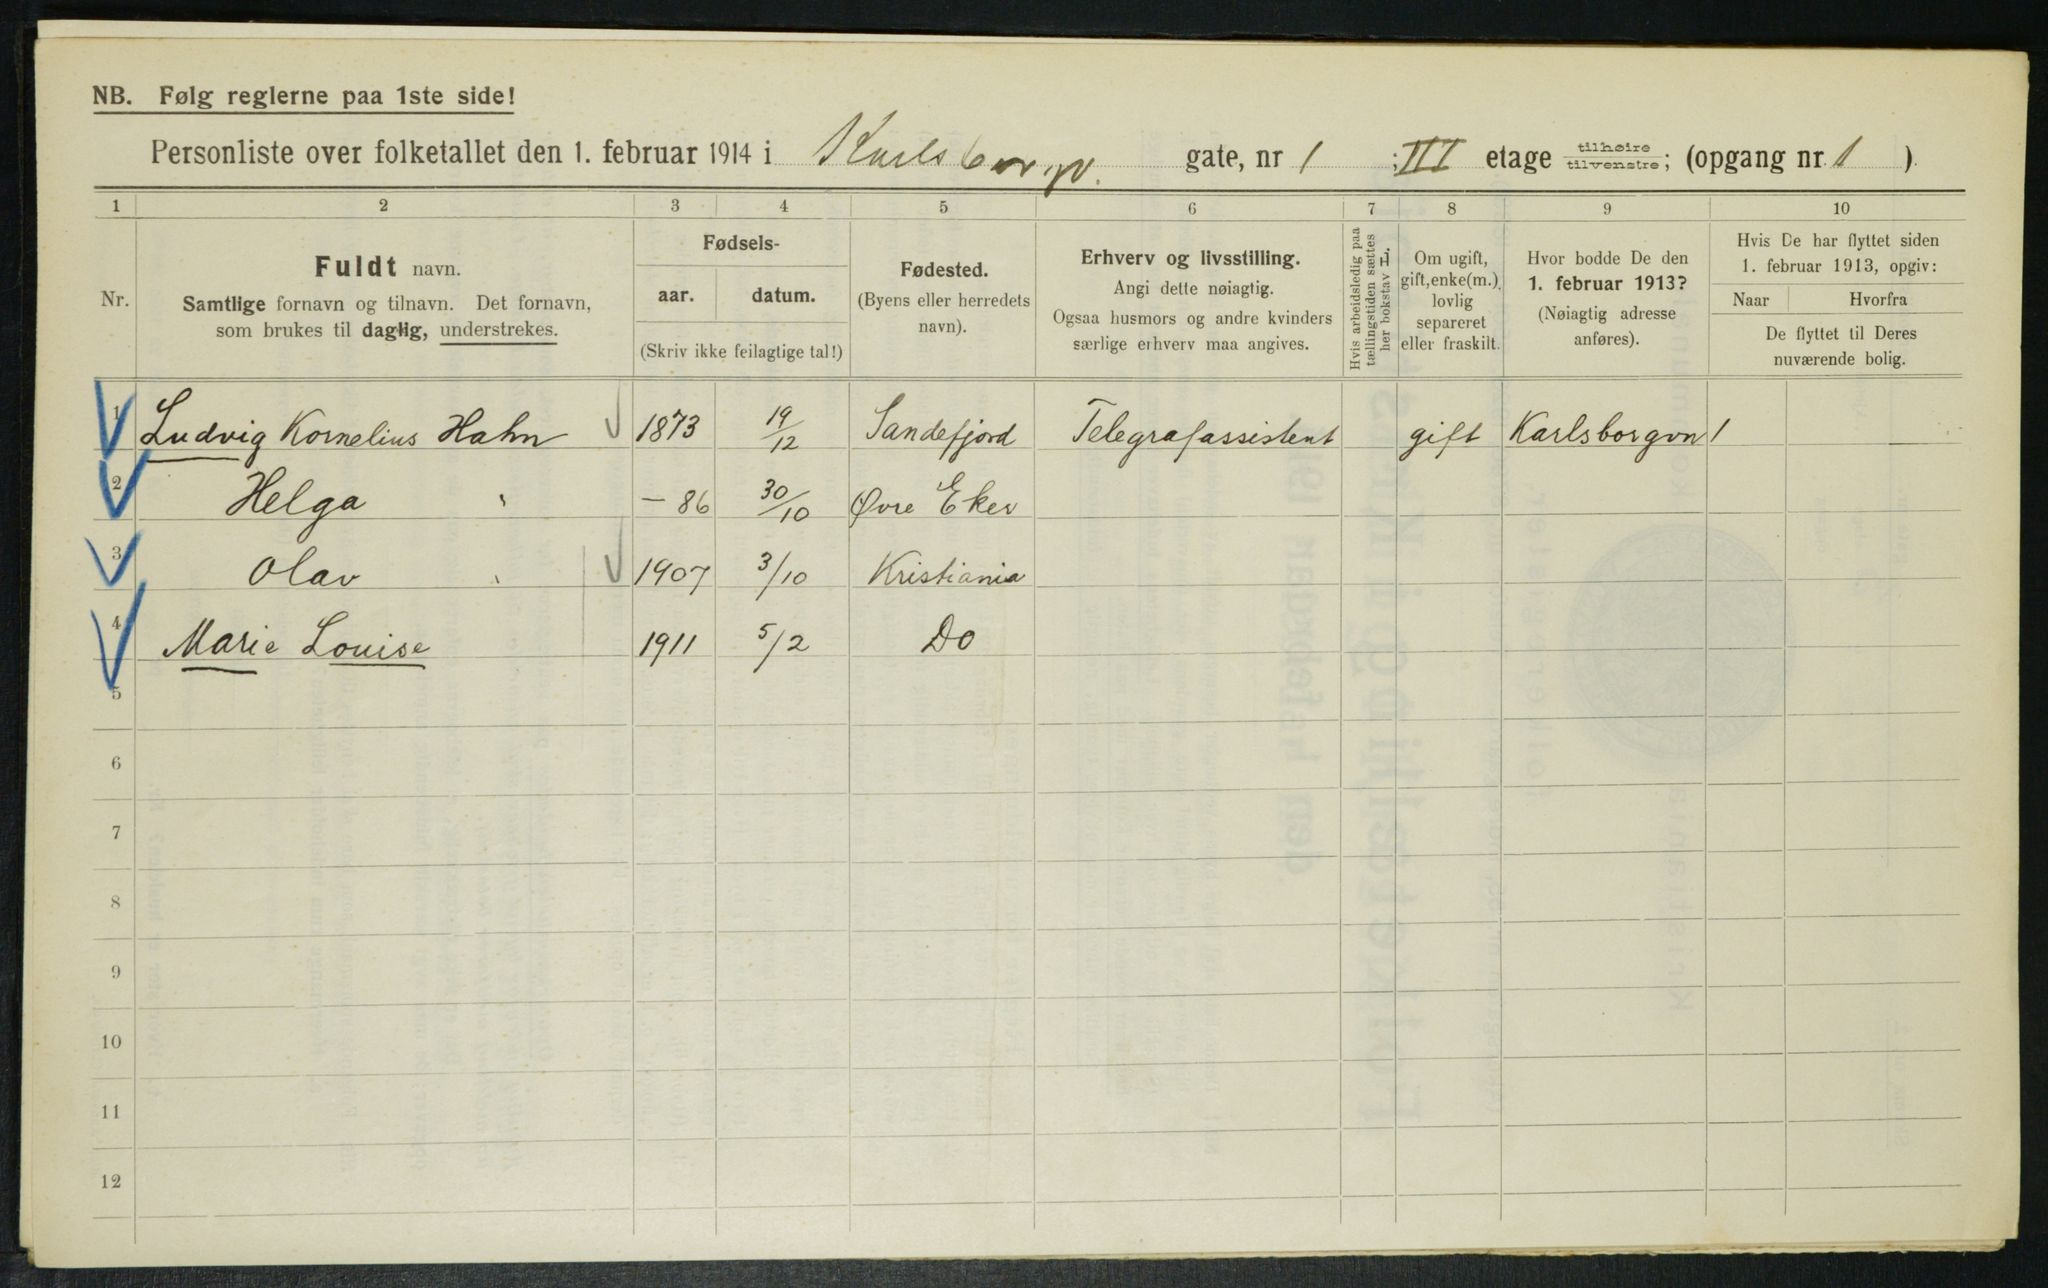 NB. Følg reglerne paa 1ste side!
Personliste over folketallet den 1. februar 1914 i Karlsborgv. gate, nr 1 ; III etage tilhøire tilvenstre; (opgang nr. 1 )
1 2 3 4 5 6 7 8 9 10
Nr.
Fuldt navn.
Samtlige fornavn og tilnavn. Det fornavn,
som brukes til daglig, understrekes.
Fødsels-
aar. datum.
(Skriv ikke feilagtige tal!)
Fødested.
(Byens eller herredets
navn).
Erhverv og livsstilling.
Angi dette nøiagtig.
Ogsaa husmors og andre kvinders
særlige erhverv maa angives.
Hvis arbeidsledig paa
tællingstiden sættes
her bokstav L.
Om ugift,
gift, enke(m.),
lovlig
separeret
eller fraskilt.
Hvor bodde De den
1. februar 1913?
(Nøiagtig adresse
anføres).
Hvis De har flyttet siden
1. februar 1913, opgiv:
Naar Hvorfra
De flyttet til Deres
nuværende bolig.
1 Ludvig Kornelius Hahn 1873 19/12 Sandefjord Telegrafassistent gift Karlsborgvn 1
2 Helga " — 86 30/10 Øvre Eker
3 Olav " 1907 3/10 Kristiania
4 Marie Louise 1911 5/2 Do
5
6
7
8
9
10
11
12